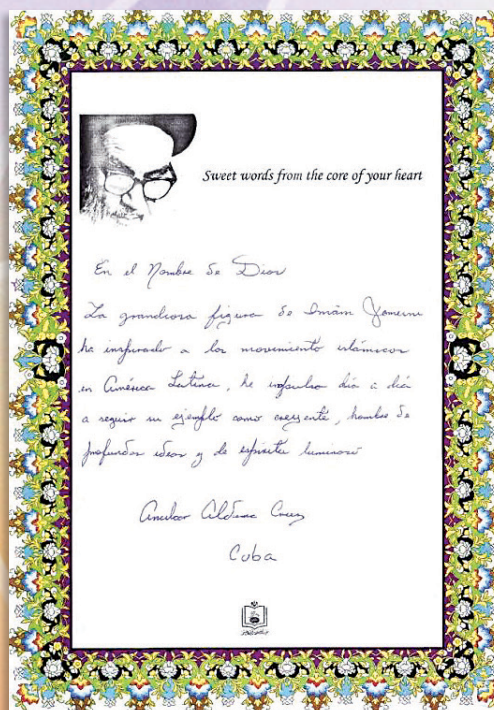 Sweet words from the core of your heart
En el Nombre de Dios
La grandiosa figura de Imám Jomeini
ha inspirado a los movimiento islámicos
en América Latina, he impulsa día a día
a seguir su ejemplo como creyente, hombre de
profundas ideas y de espíritu luminoso
Cruz
Cuba